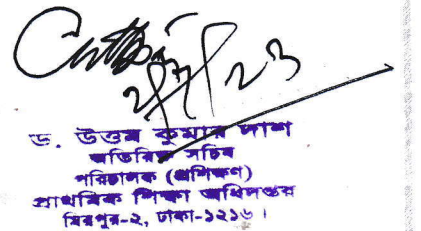 ড. উত্তম কুমার দাশ
অতিরিক্ত সচিব
পরিচালক (প্রশিক্ষণ)
প্রাথমিক শিক্ষা অধিদপ্তর
মিরপুর-২, ঢাকা-১২১৬।